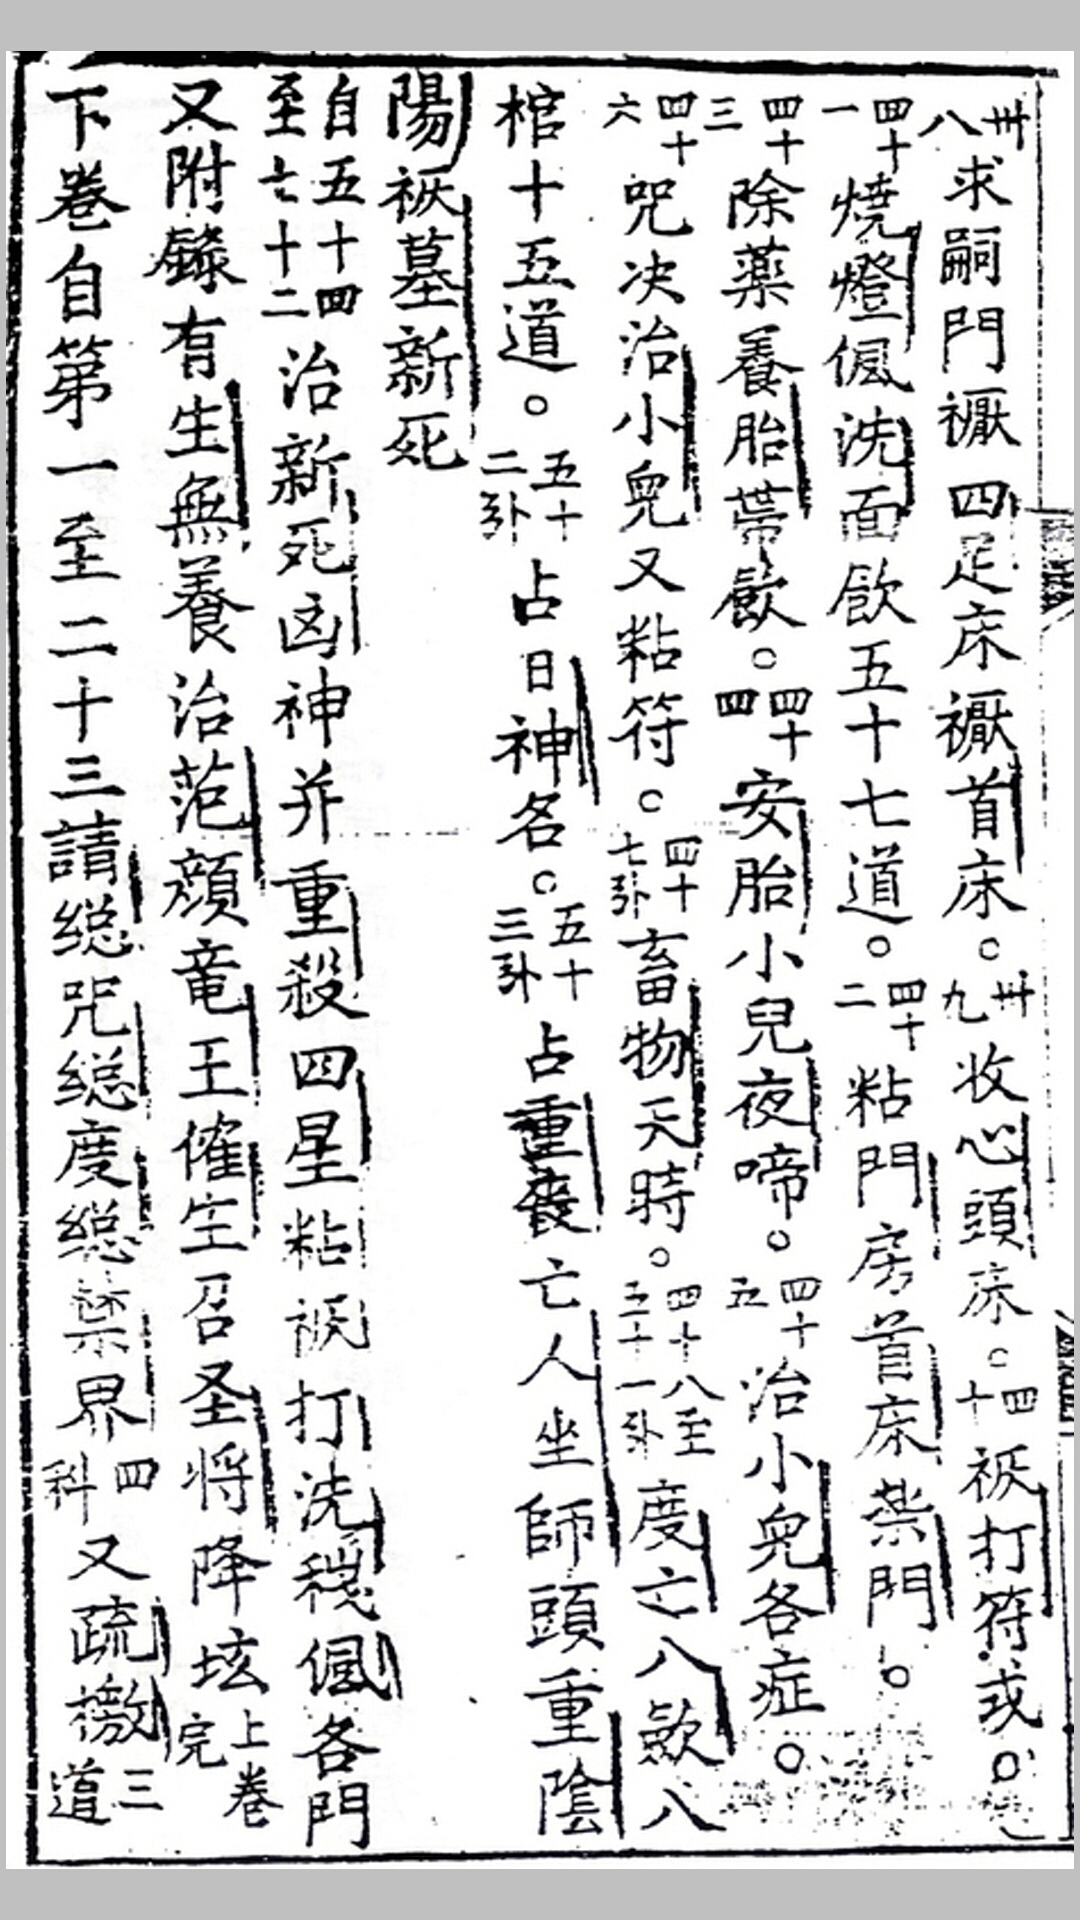 卅八求嗣門禳四足床禳首床○卅九收心頭床○四十袚打符或○
四十一燒燈個洗面飲五十七道○四十二粘門房首床禁門○
四十三除藥養胎帶飲○四十四安胎小兒夜啼○四十五治小兒各症○
四十六咒决治小兒又粘符○四十七卦畜物天時○四十八至五十一卦度亡八歎八
棺十五道○五十二卦占日神名○五十三卦占重喪亡人坐師頭重陰
陽袚墓新死
自五十四至七十二治新死凶神并重殺四星粘袚打洗穢個各門
又附錄有生無養治范顏竜王催生召圣將降坛上卷完
下卷自第一至二十三請総咒総度総禁界四科又疏檄三道